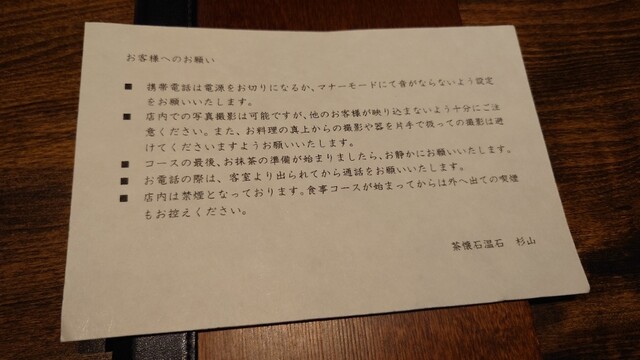 お客様へのお願い
■ 携帯電話は電源をお切りになるか、マナーモードにて音がならないよう設定
をお願いいたします。
■ 店内での写真撮影は可能ですが、他のお客様が映り込まないよう十分にご注
意ください。また、お料理の真上からの撮影や器を片手で扱っての撮影は避
けてくださいますようお願いいたします。
■ コースの最後、お抹茶の準備が始まりましたら、お静かにお願いいたします。
■ お電話の際は、客室より出られてから通話をお願いいたします。
■ 店内は禁煙となっております。食事コースが始まってからは外へ出ての喫煙
もお控えください。
茶懐石温石 杉山